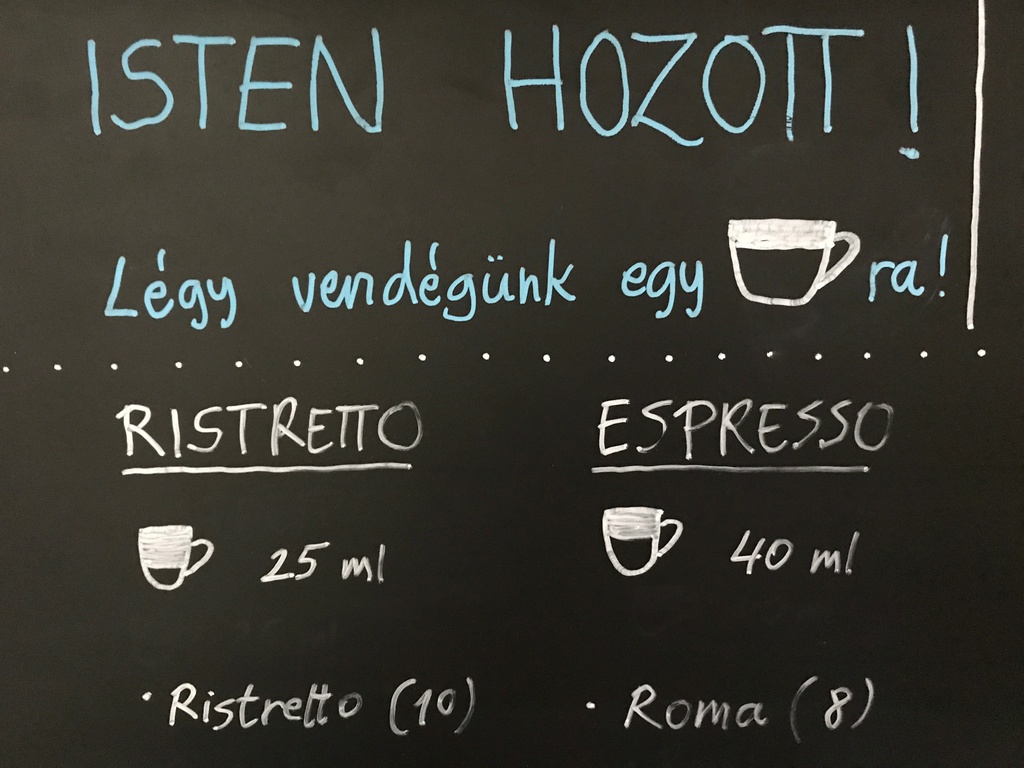 ISTEN HOZOTT!
Légy vendégünk egy ra!
RISTRETTO ESPRESSO
25 ml 40 ml
• Ristretto (10) • Roma (8)